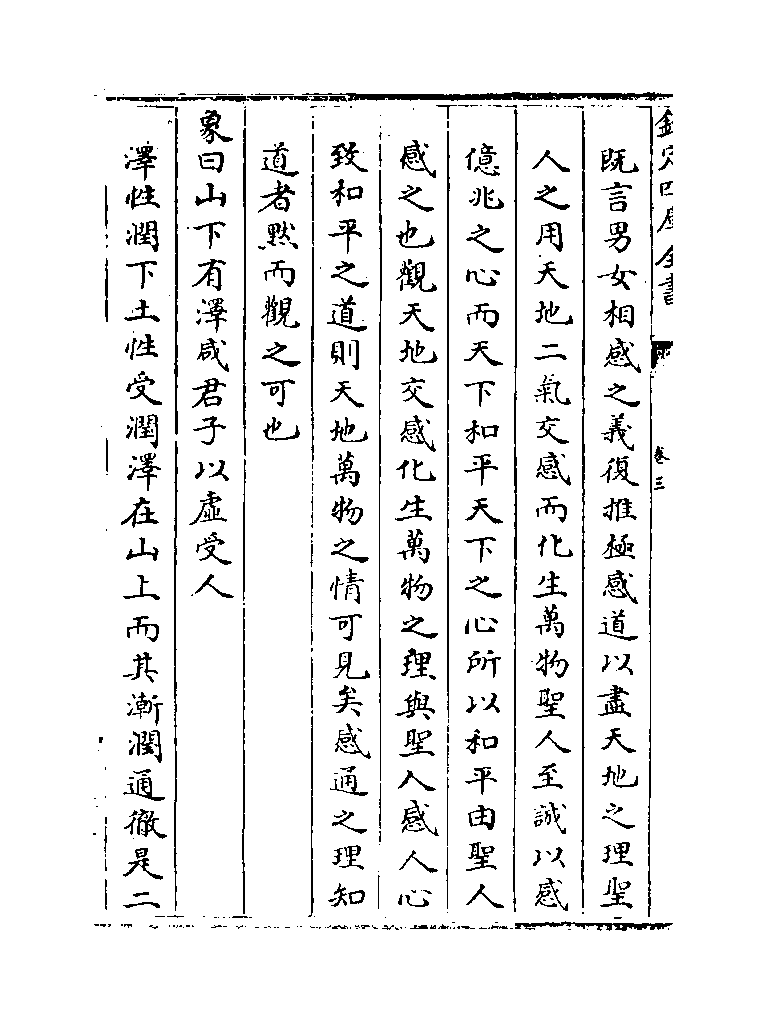 欽定四庫全書
卷三
既言男女相感之義復推極感道以盡天地之理聖
人之用天地二氣交感而化生萬物聖人至誠以感
億兆之心而天下和平天下之心所以和平由聖人
感之也觀天地交感化生萬物之理與聖人感人心
致和平之道則天地萬物之情可見矣感通之理知
道者黙而觀之可也
象曰山下有澤咸君子以虛受人
澤性潤下土性受潤澤在山上而其漸潤通徹是二